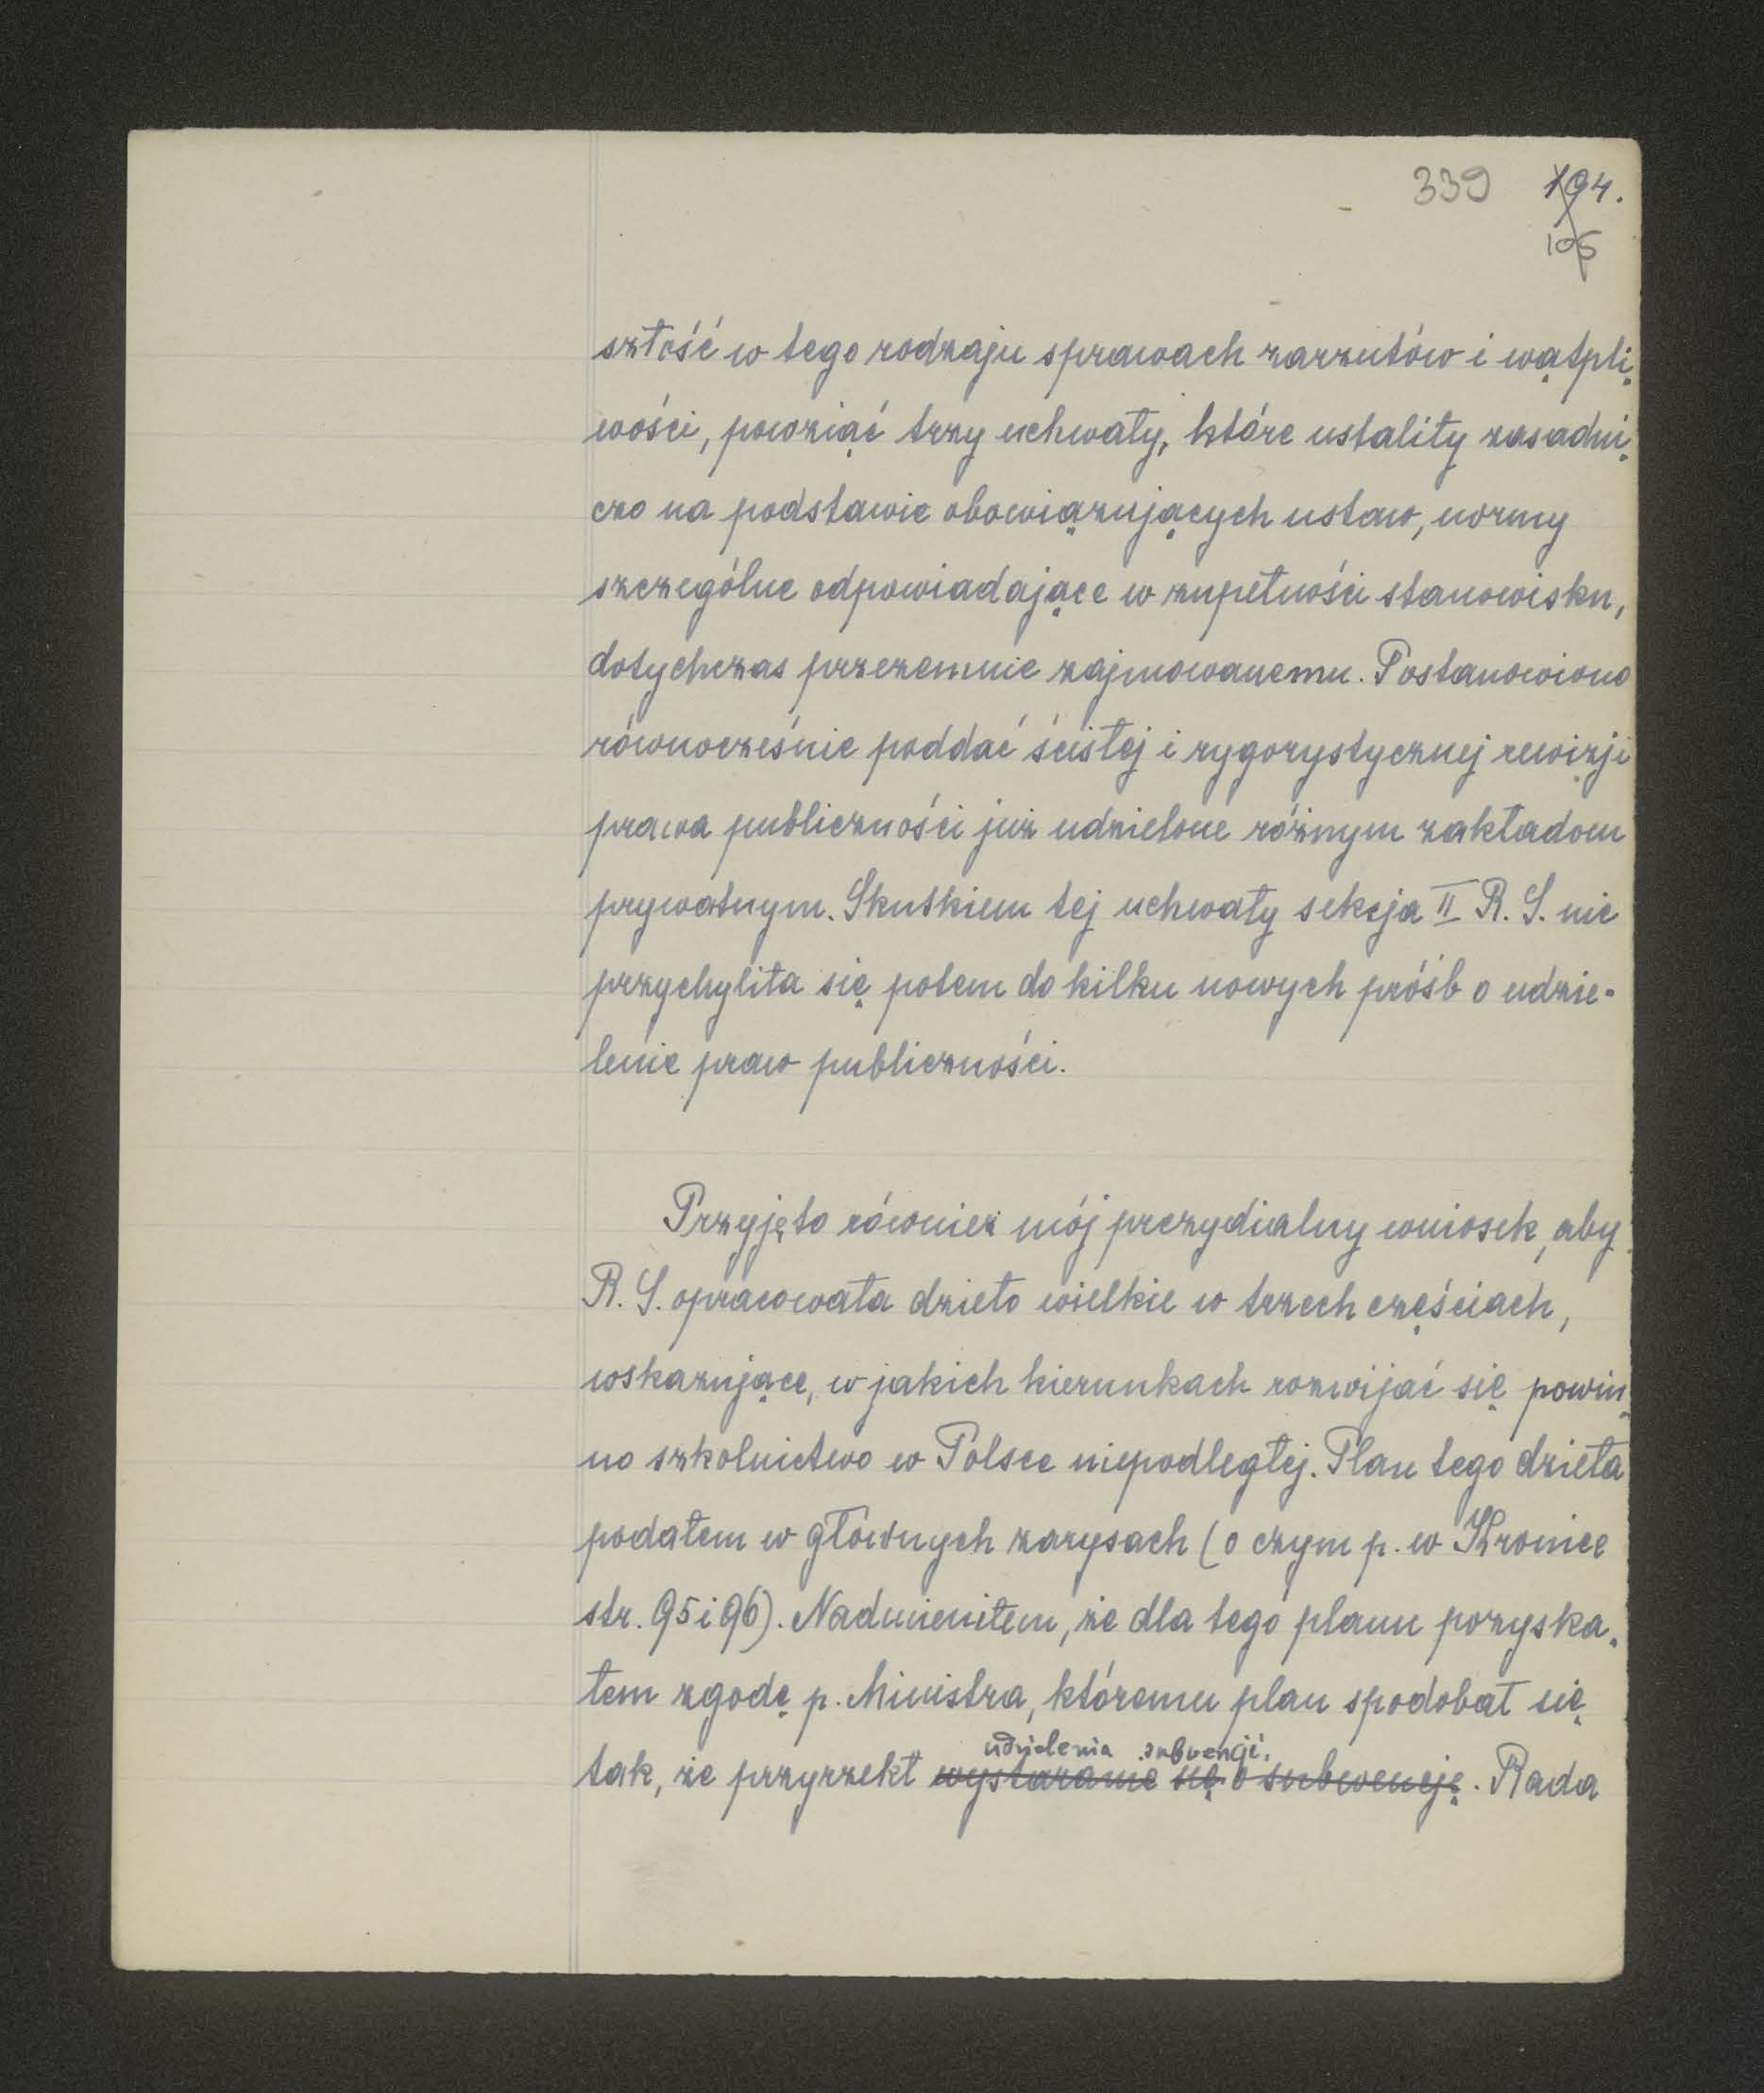 339 194.
105
szłość w tego rodzaju sprawach zarzutów i wątpli-
wości, powziąć trzy uchwały, które ustaliły zasadni-
czo na podstawie obowiązujących ustaw, normy
szczególne odpowiadające w zupełności stanowisku,
dotychczas przezemnie zajmowanemu. Postanowiono
równocześnie poddać ścisłej i rygorystycznej rewizji
prawa publiczności już udzielone różnym zakładom
prywatnym. Skutkiem tej uchwały sekcja II R. S. nie
przychyliła się potem do kilku nowych próśb o udzie-
lenie praw publiczności.
Przyjęto również mój prezydialny wniosek, aby
R. S. opracowała dzieło wielkie w trzech częściach,
wskazujące, w jakich kierunkach rozwijać się powin-
no szkolnictwo w Polsce niepodległej. Plan tego dzieła
podałem w głównych zarysach (o czym p. w Kronice
str. 95 i 96). Nadmieniłem, że dla tego planu pozyska-
łem zgodę p. Ministra, któremu plan spodobał się
udzielenia subwencji.
tak, że przyrzekł wystaranie się o subwencję. Rada